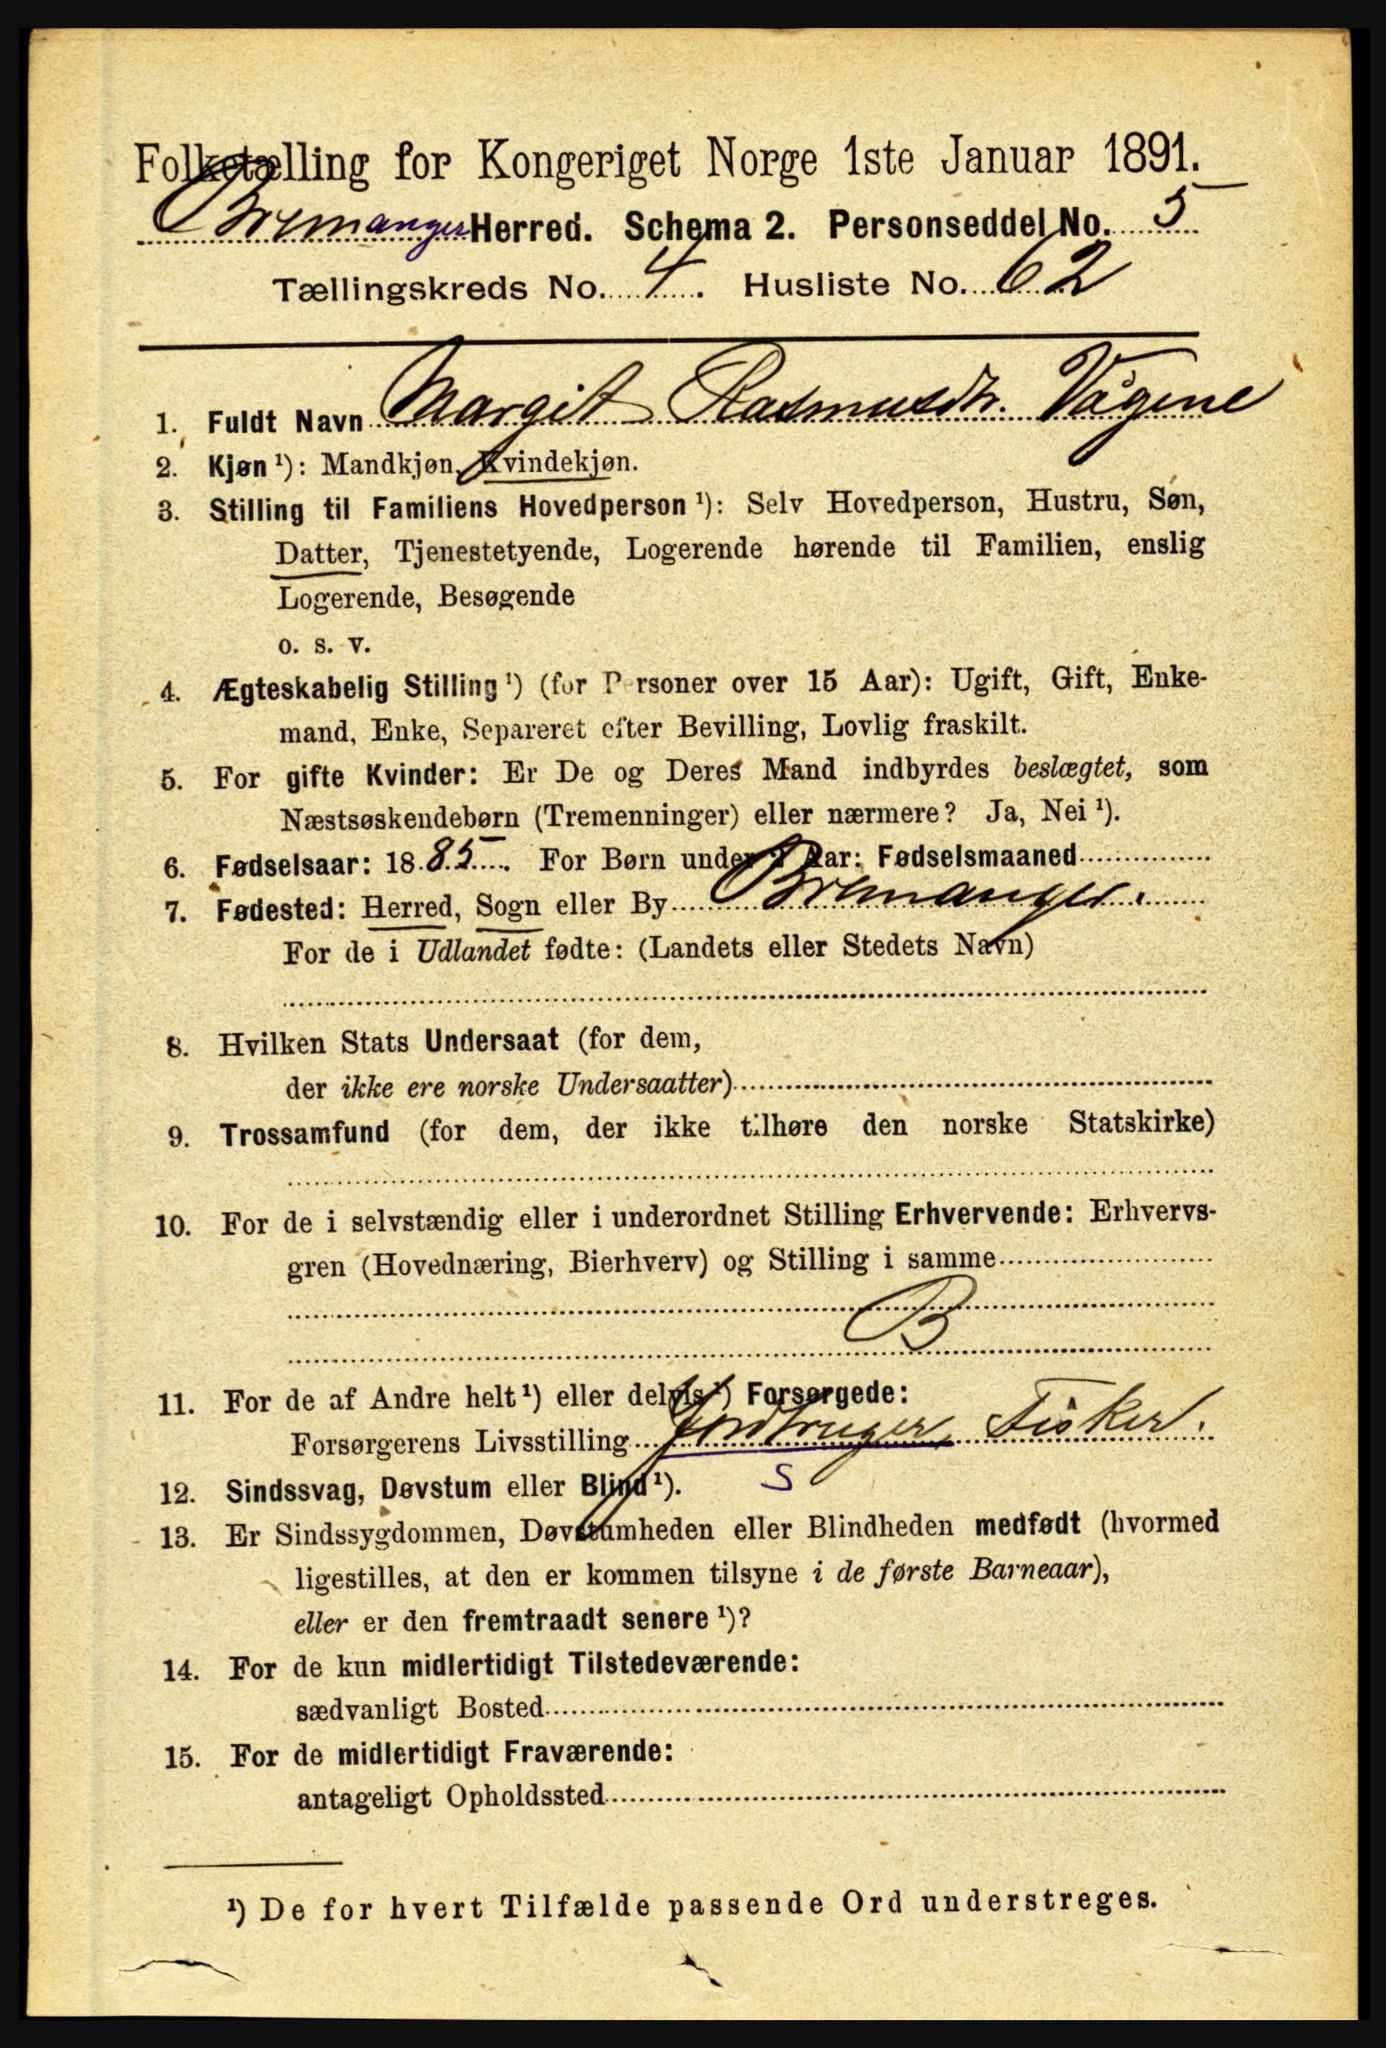 Folketælling for Kongeriget Norge 1ste Januar 1891.
Bremanger Herred. Schema 2. Personseddel No. 5
Tællingskreds No. 4. Husliste No. 62
1. Fuldt Navn Margit Rasmusdtr. Vågene
2. Kjøn ¹): Mandkjøn, Kvindekjøn.
3. Stilling til Familiens Hovedperson ¹): Selv Hovedperson, Hustru, Søn,
Datter, Tjenestetyende, Logerende hørende til Familien, enslig
Logerende, Besøgende
o. s. v.
4. Ægteskabelig Stilling ¹) (for Personer over 15 Aar): Ugift, Gift, Enke-
mand, Enke, Separeret efter Bevilling, Lovlig fraskilt.
5. For gifte Kvinder: Er De og Deres Mand indbyrdes beslægtet, som
Næstsøskendebørn (Tremenninger) eller nærmere? Ja, Nei ¹).
6. Fødselsaar: 1885. For Børn under 1 Aar: Fødselsmaaned
7. Fødested: Herred, Sogn eller By Bremanger.
For de i Udlandet fødte: (Landets eller Stedets Navn)
8. Hvilken Stats Undersaat (for dem,
der ikke ere norske Undersaatter)
9. Trossamfund (for dem, der ikke tilhøre den norske Statskirke)
10. For de i selvstændig eller i underordnet Stilling Erhvervende: Erhvervs-
gren (Hovednæring, Bierhverv) og Stilling i samme
B
11. For de af Andre helt ¹) eller delvis ¹) Forsørgede:
Forsørgerens Livsstilling Jordbruger, Fisker.
S
12. Sindssvag, Døvstum eller Blind ¹).
13. Er Sindssygdommen, Døvstumheden eller Blindheden medfødt (hvormed
ligestilles, at den er kommen tilsyne i de første Barneaar),
eller er den fremtraadt senere ¹)?
14. For de kun midlertidigt Tilstedeværende:
sædvanligt Bosted
15. For de midlertidigt Fraværende:
antageligt Opholdssted
¹) De for hvert Tilfælde passende Ord understreges.